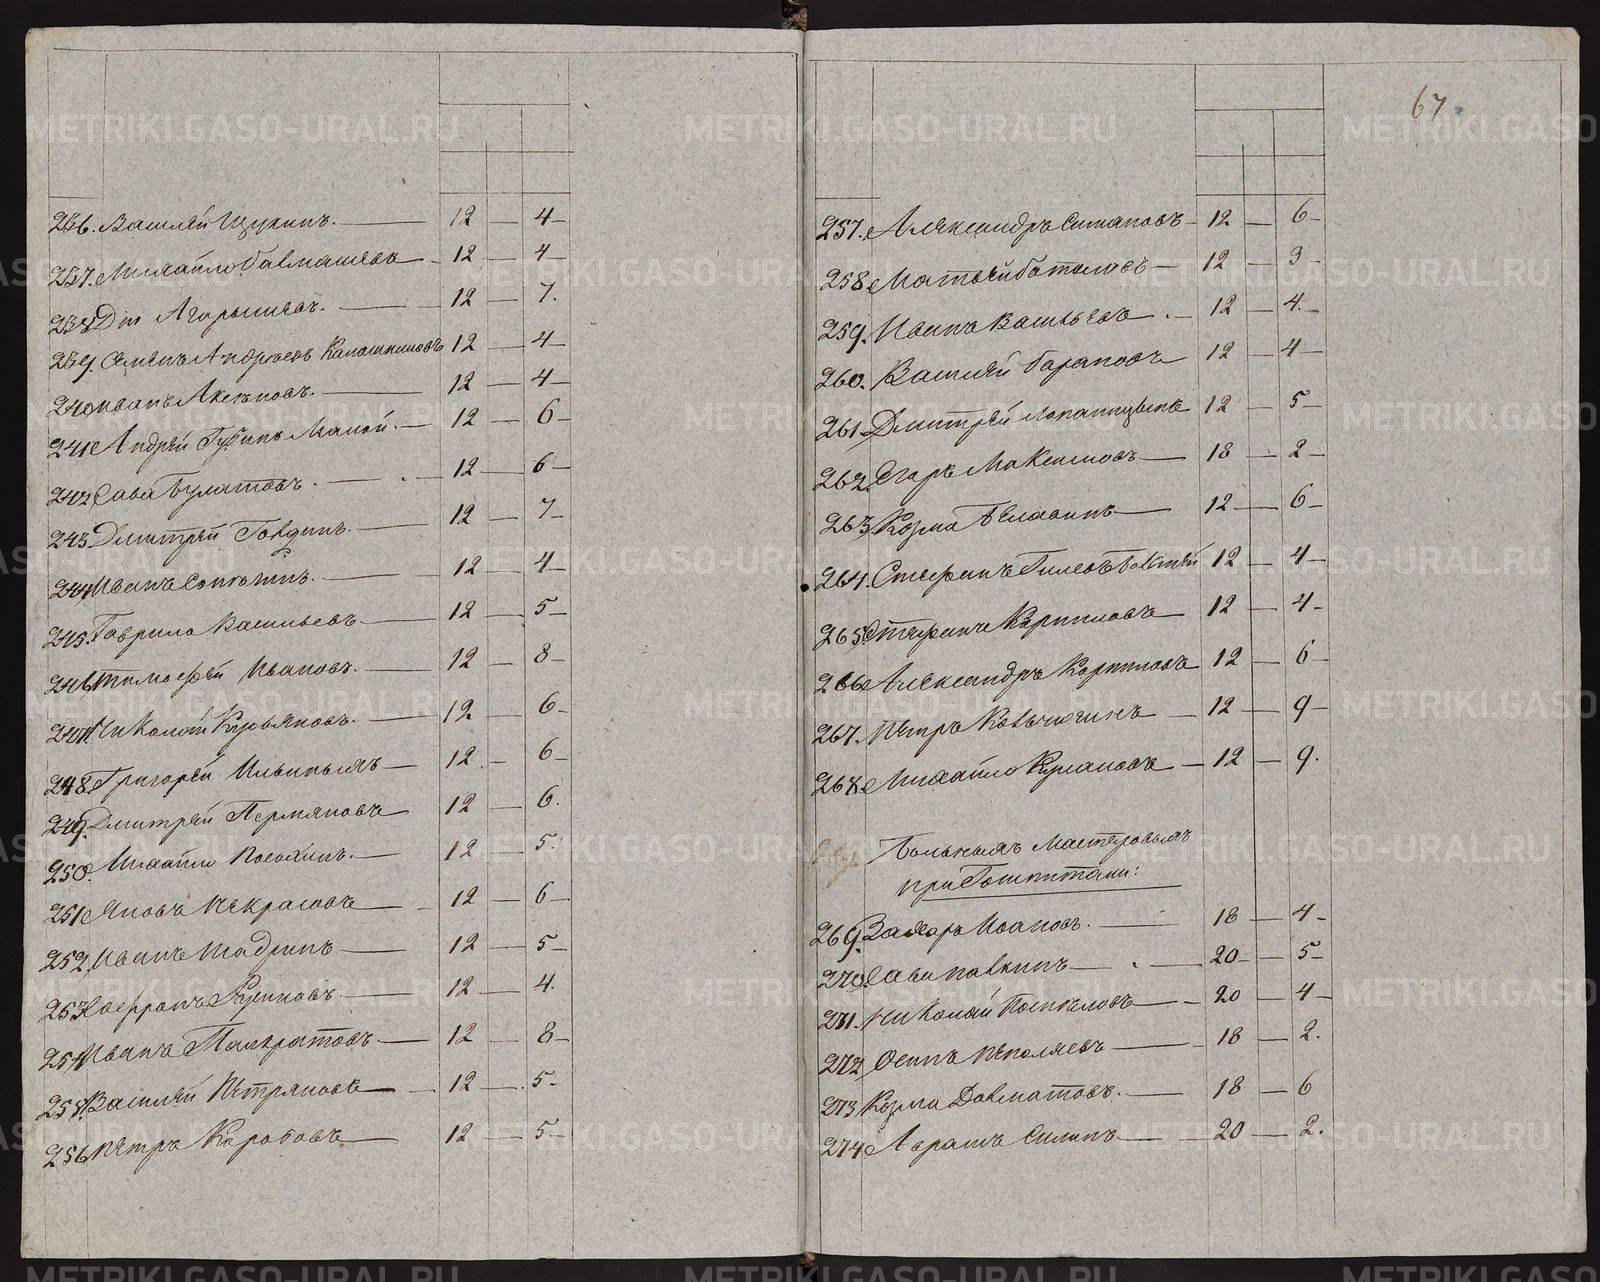 236. Василей Щукинъ. 12 — 4
237. Михайло Бавмашевъ 12 — 4
238 Дм Агарышевъ. 12 — 7.
239. Семенъ Андреевъ Калашниковъ 12 — 4
240 Иванъ Аксеновъ. 12 — 4
241 Андрей Губинъ Малой. 12 — 6
242 Сава Булатовъ. 12 — 6
243 Дмитрей Говдинъ. 12 — 7
244 Иванъ 12 — 4
245. Гаврило Васильевъ. 12 — 5
246 Тимофей Ивановъ. 12 — 8
247. Николай Курьяновъ. 12 — 6
248. Григорей Ильиныхъ 12 — 6
249. Дмитрей Пермяковъ 12 — 6.
250. Михайло Посохинъ. 12 — 5.
251 Яковъ Некрасовъ 12 — 6
252. Иванъ Шадринъ 12 — 5
253 Сафронъ 12 — 4.
254 Иванъ Панкратовъ 12 — 8
255. Василей Петряковъ 12 — 5
256 Петръ Коробовъ 12 — 5
67.
257. Александръ Ситановъ 12 — 6
258. Матвей Баталовъ 12 — 3
259. Иванъ Васильевъ. 12 — 4.
260. Василей Барановъ 12 — 4
261. Дмитрей Лопатицынъ 12 — 5
262. Егоръ Максимовъ 18 — 2
263 Козма Белавинъ 12 — 6
264. Стефанъ Гилевъ Болшей 12 — 4
265. Стефанъ Корниловъ 12 — 4
266 Александръ Корниловъ 12 — 6
267. Петръ Ковычигинъ 12 — 9
268. Михайло Кулаковъ 12 — 9.
Больныхъ Мастеровыхъ
при Гошпитали:
269. Захаръ Ивановъ. 18 — 4
270. Сава Павкинъ 20 — 5
271. Николай Поспеловъ 20 — 4
272. Осипъ Неполяевъ 18 — 2.
273 Козма Давматовъ. 18 — 6
274 Аврамъ Силинъ 20 — 2.
METRIKI.GASO-URAL.RU